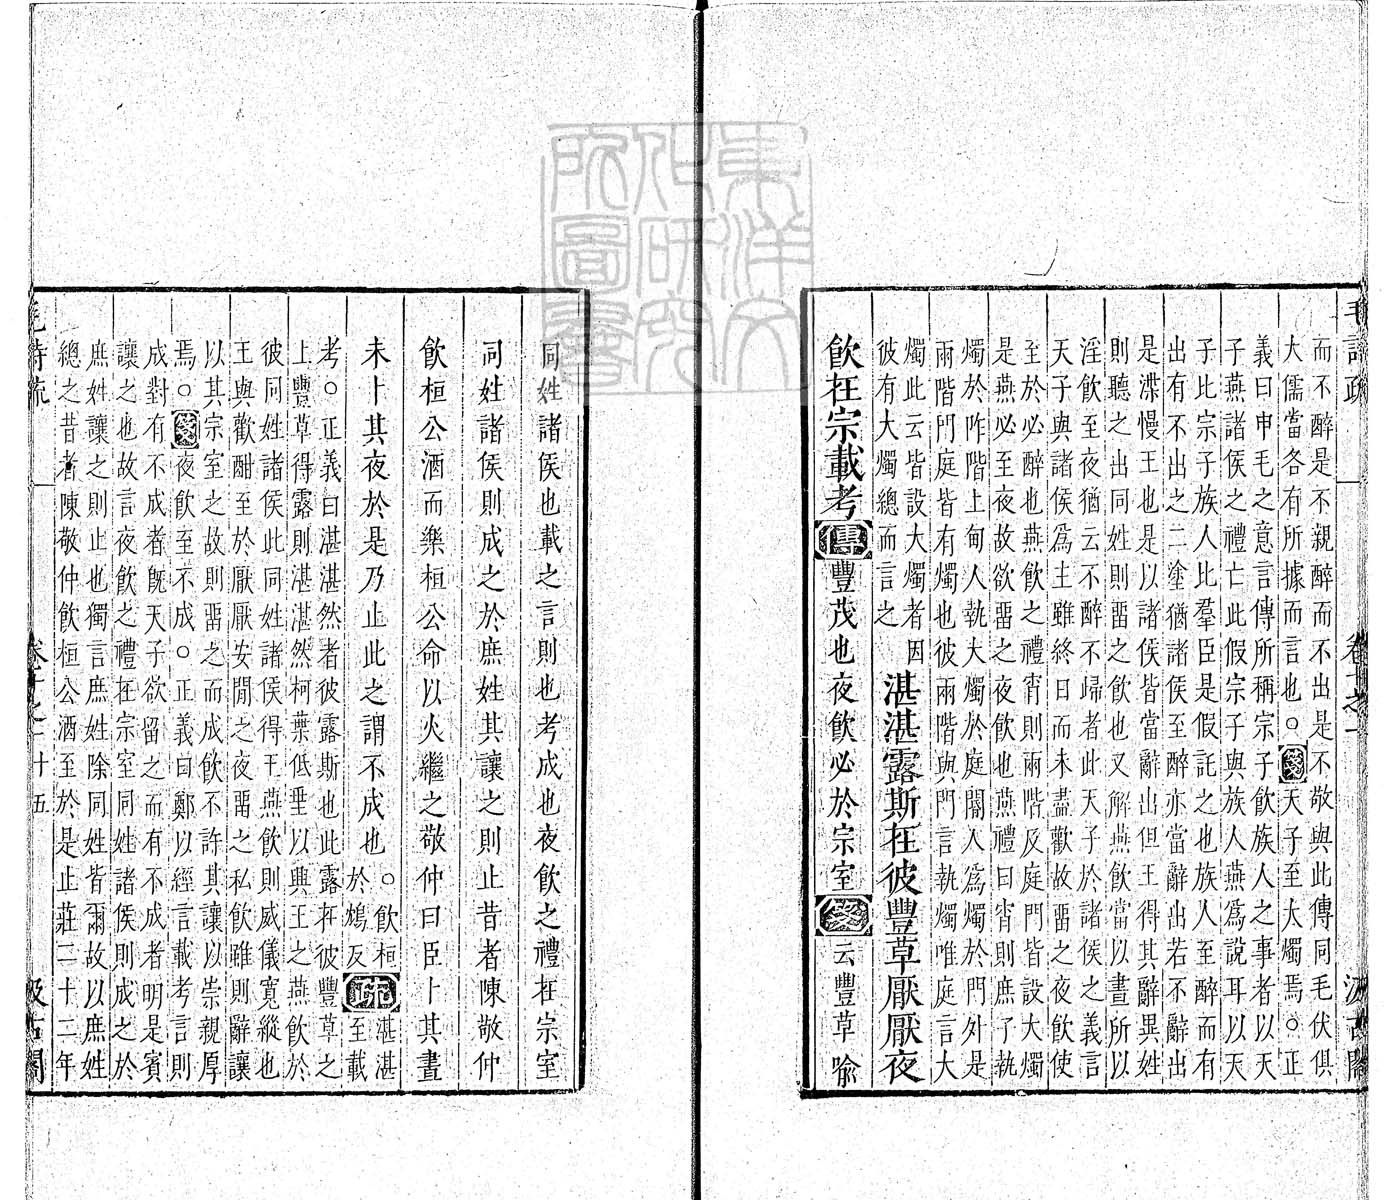 毛詩疏
卷十之一
汲古閣
而不醉是不親醉而不出是不敬與此傳同毛伏俱
大儒當各有所據而言也○箋天子至大燭焉○正
義曰申毛之意言傳所稱宗子飲族人之事者以天
子燕諸侯之禮亡此假宗子與族人燕爲說耳以天
子比宗子族人比羣臣是假託之也族人至醉而有
出有不出之二塗猶諸侯至醉亦當辭出若不辭出
是渫慢王也是以諸侯皆當辭出但王得其辭異姓
則聽之出同姓則畱之飲也又解燕飲當以晝所以
淫飲至夜猶云不醉不歸者此天子於諸侯之義言
天子與諸侯爲主雖終日而未盡歡故畱之夜飲使
至於必醉也燕飲之禮宵則兩階及庭門皆設大燭
是燕必至夜故欲畱之夜飲也燕禮曰宵則庶子執
燭於阼階上甸人執大燭於庭閽人爲燭於門外是
兩階門庭皆有燭也彼兩階與門言執燭唯庭言大
燭此云皆設大燭者因
彼有大燭總而言之
湛湛露斯在彼豐草厭厭夜
飲在宗載考傳豐茂也夜飲必於宗室箋云豐草喻
同姓諸侯也載之言則也考成也夜飲之禮在宗室
同姓諸侯則成之於庶姓其讓之則止昔者陳敬仲
飲桓公酒而樂桓公命以火繼之敬仲曰臣卜其晝
未卜其夜於是乃止此之謂不成也○飲桓
於鴆反
疏湛湛
至載
考○正義曰湛湛然者彼露斯也此露在彼豐草之
上豐草得露則湛湛然柯葉低垂以興王之燕飲於
彼同姓諸侯此同姓諸侯得王燕飲則威儀寬縱也
王與歡酣至於厭厭安閒之夜畱之私飲雖則辭讓
以其宗室之故則畱之而成飲不許其讓以崇親厚
焉○箋夜飲至不成○正義曰鄭以經言載考言則
成對有不成者旣天子欲留之而有不成者明是賓
讓之也故言夜飲之禮在宗室同姓諸侯則成之於
庶姓讓之則止也獨言庶姓除同姓皆爾故以庶姓
總之昔者陳敬仲飲桓公酒至於是止莊二十二年
毛詩疏
卷十之一
十五
汲古閣
東洋文
化研究
所圖書